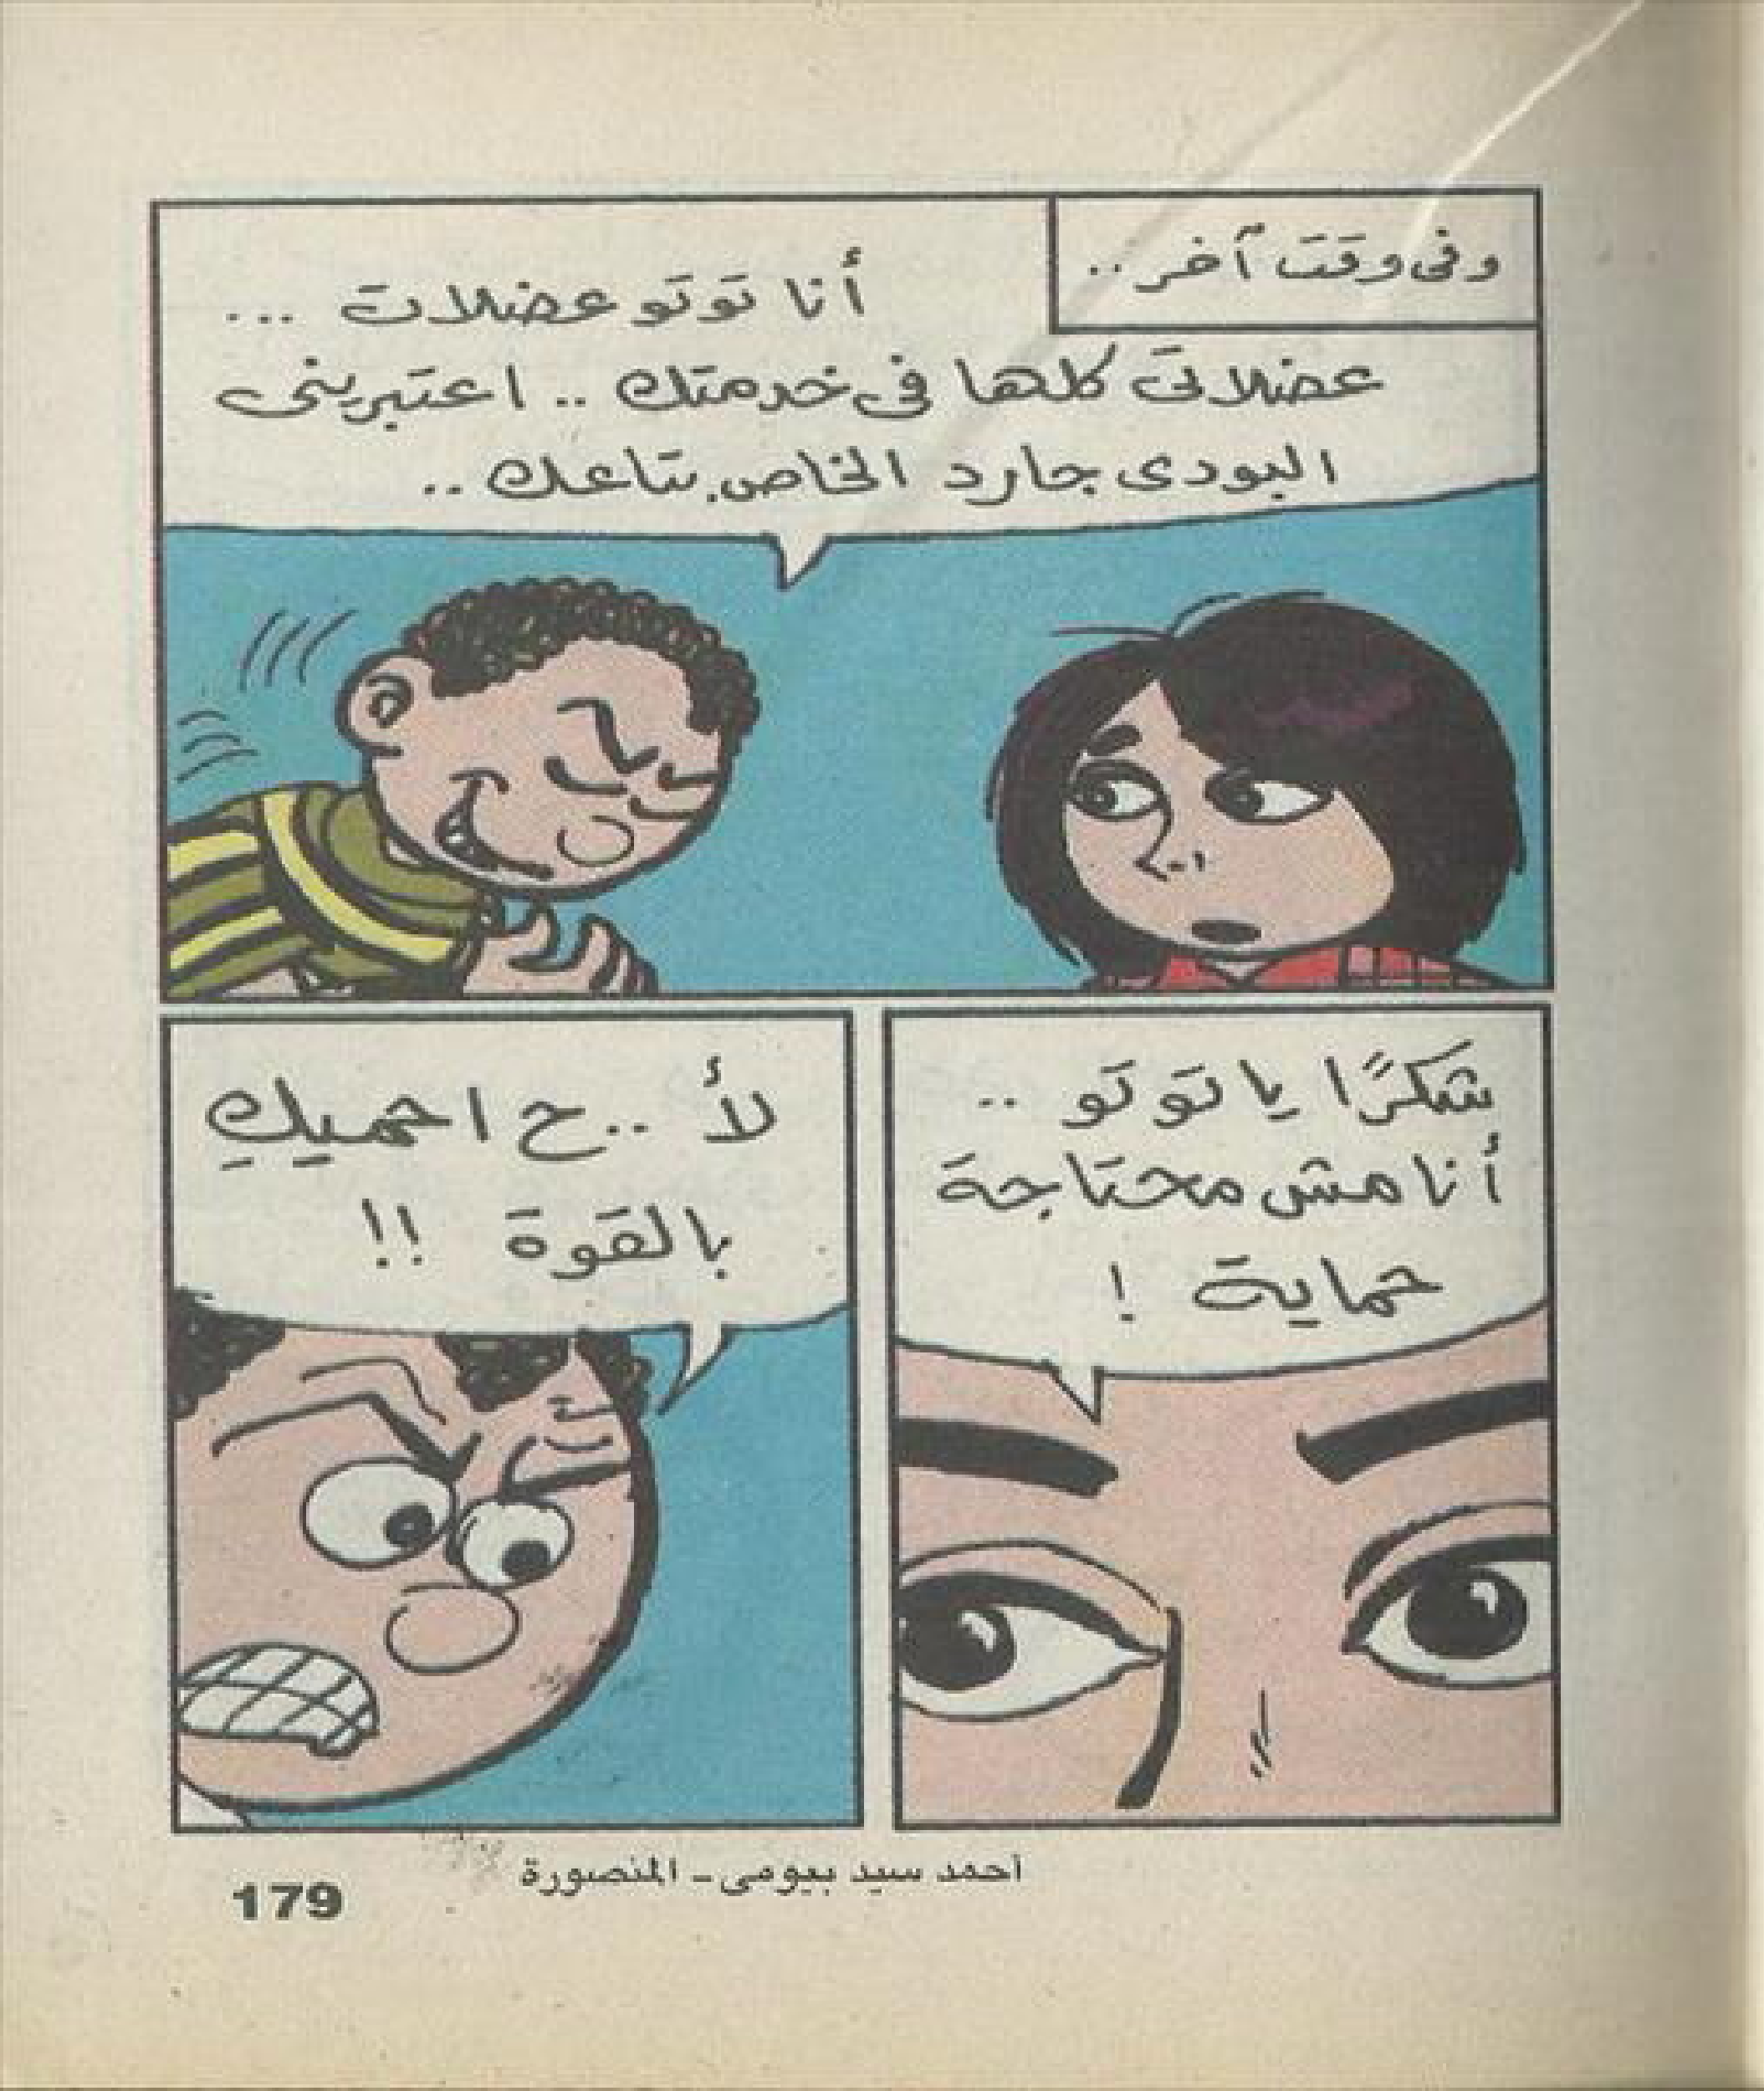 وفى وقت آخر ..
أنا توتو عضلات ...
عضلاتى كلها فى خدمتك .. اعتبرينى
البودى جارد الخاص بتاعك ..
شكرًا يا توتو ..
أنا مش محتاجة
حماية !
لأ .. ح احميكِ
بالقوة !!
أحمد سيد بيومى - المنصورة
179